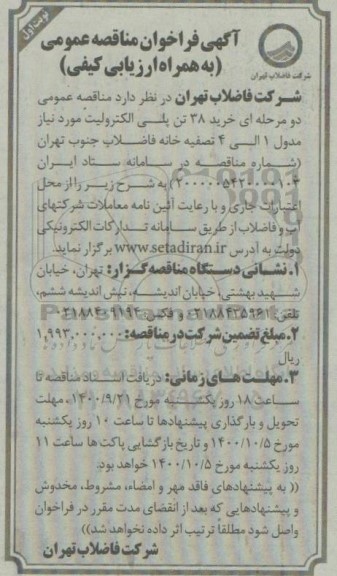 نوبت اول
آگهی فراخوان مناقصه عمومی
(به همراه ارزیابی کیفی)
شرکت فاضلاب تهران
شرکت فاضلاب تهران در نظر دارد مناقصه عمومی
دو مرحله ای خرید ۳۸ تن پلی الکترولیت مورد نیاز
مدول ۱ الی ۴ تصفیه خانه فاضلاب جنوب تهران
(شماره مناقصه در سامانه ستاد ایران
) به شرح زیر را از محل
اعتبارات جاری و با رعایت آئین نامه معاملات شرکتهای
آب و فاضلاب از طریق سامانه تدارکات الکترونیکی
دولت به آدرس www.setadiran.ir برگزار نماید.
۱. نشانی دستگاه مناقصه گزار: تهران، خیابان
شهید بهشتی، خیابان اندیشه، نبش اندیشه ششم،
تلفن و فکس
۲. مبلغ تضمین شرکت در مناقصه: ۱,۹۹۳,۰۰۰,۰۰۰
ریال
۳. مهلت های زمانی: دریافت اسناد مناقصه تا
ساعت ۱۸ روز یکشنبه مورخ ۱۴۰۰/۹/۲۱، مهلت
تحویل و بارگذاری پیشنهادها تا ساعت ۱۰ روز یکشنبه
مورخ ۱۴۰۰/۱۰/۵ و تاریخ بازگشایی پاکت ها ساعت ۱۱
روز یکشنبه مورخ ۱۴۰۰/۱۰/۵ خواهد بود.
(( به پیشنهادهای فاقد مهر و امضاء، مشروط، مخدوش
و پیشنهادهایی که بعد از انقضای مدت مقرر در فراخوان
واصل شود مطلقاً ترتیب اثر داده نخواهد شد))
شرکت فاضلاب تهران